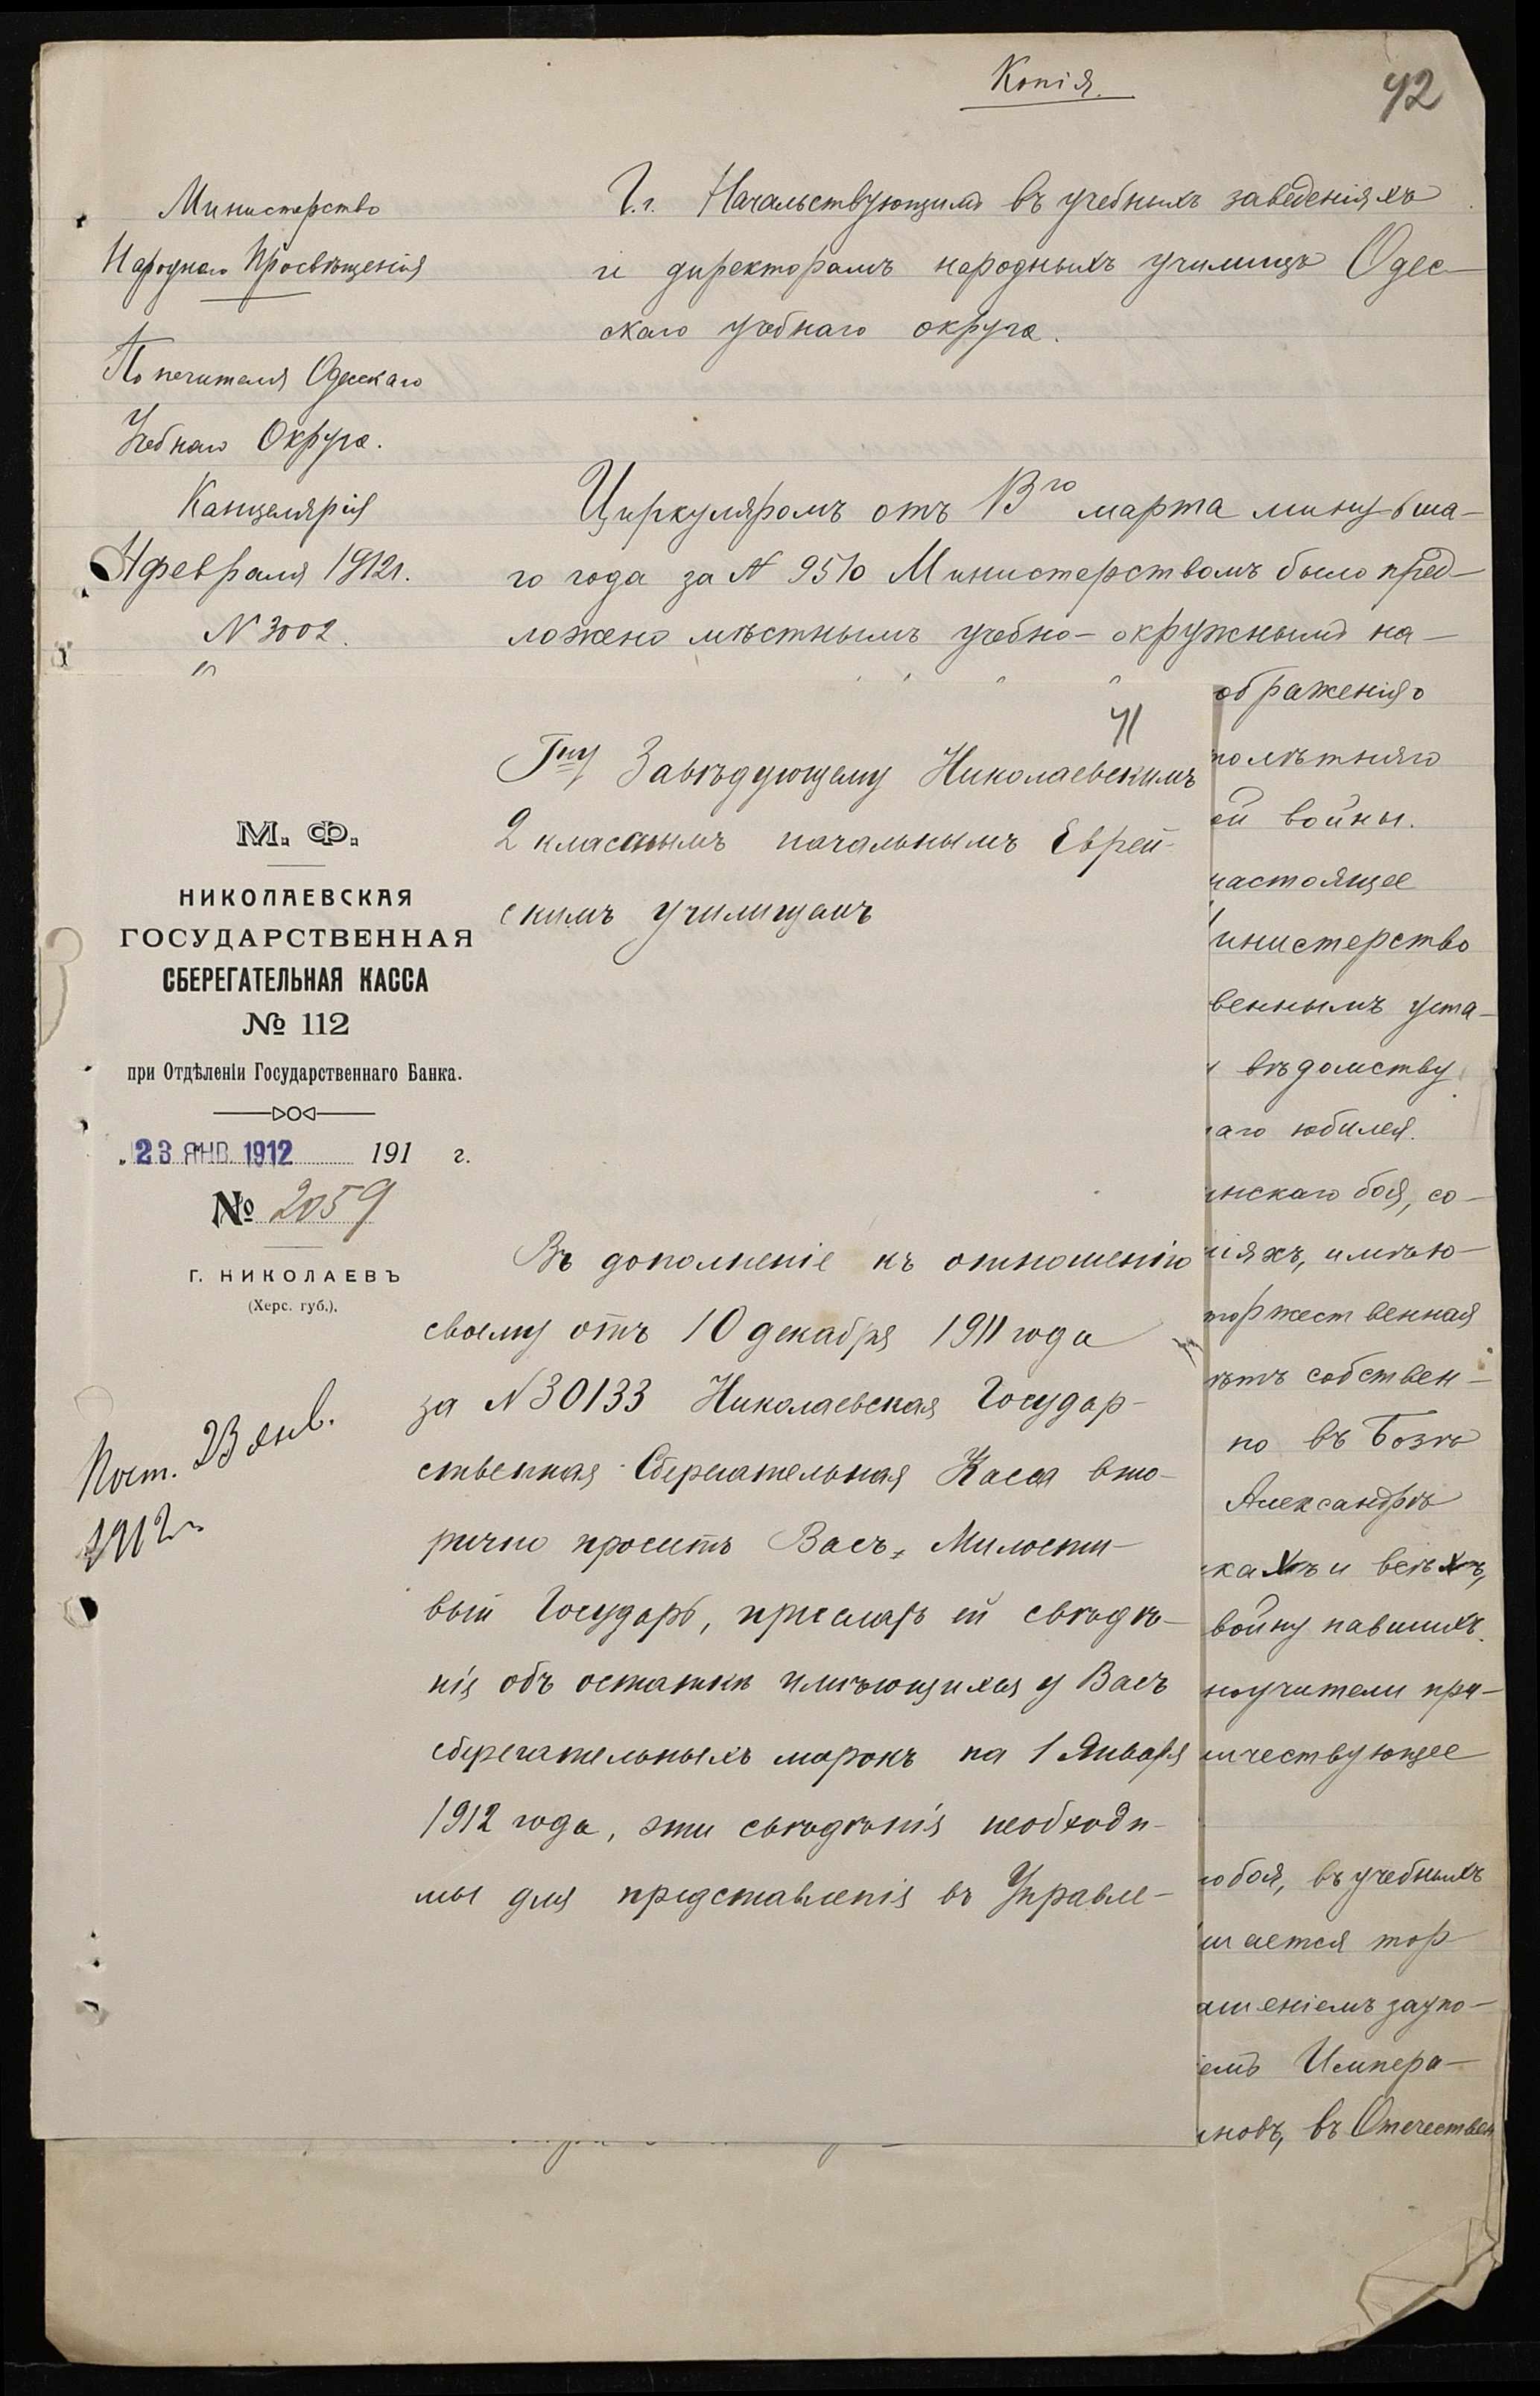 Копія.
42
Министерство
Народнаго Просвѣщенія
Попечителя Одесскаго
Учебнаго Округа.
Канцелярія
4 февраля 1912 г.
N 3002.
Г.г. Начальствующимъ въ учебныхъ заведеніяхъ
и директорамъ народныхъ училищъ Одес-
скаго учебнаго округа.
Циркуляромъ отъ 13го марта минувша-
го года за N 9510 Министерствомъ было пред-
ложено мѣстнымъ учебно-окружнымъ на-
ображенія о
толѣтняго
ей войны.
настоящее
инистерство
веннымъ уста-
вѣдомству
аго юбилея.
инскаго боя, со-
ніяхъ, имѣю-
торжественная
ѣтъ собствен-
но въ Бозѣ
Александрѣ
иках​ъ и всѣхъ,
войну павшихъ.
ноучители при-
ичествующее
о боя, въ учебныхъ
шается тор
ашеніемъ заупо-
емъ Импера-
новъ, въ Отечествен
41
М. Ф.
НИКОЛАЕВСКАЯ
ГОСУДАРСТВЕННАЯ
СБЕРЕГАТЕЛЬНАЯ КАССА
№ 112
при Отдѣленіи Государственнаго Банка.
„23 ЯНВ. 1912 191 г.
№ 2059
г. НИКОЛАЕВЪ
(Херс. губ.).
Пост. 23 янв.
1912 г.
Гну Завѣдующему Николаевскимъ
2 класснымъ начальнымъ Еврей-
скимъ училищемъ
Въ дополненіе къ отношенію
своему отъ 10 декабря 1911 года
за N 30133 Николаевская Государ-
ственная Сберегательная Касса вто-
рично проситъ Васъ, Милости-
вый Государь, прислать ей свѣдѣ-
нія объ остаткѣ имѣющихся у Васъ
сберегательныхъ марокъ на 1 Января
1912 года, эти свѣдѣнія необходи-
мы для представленія въ Управле-